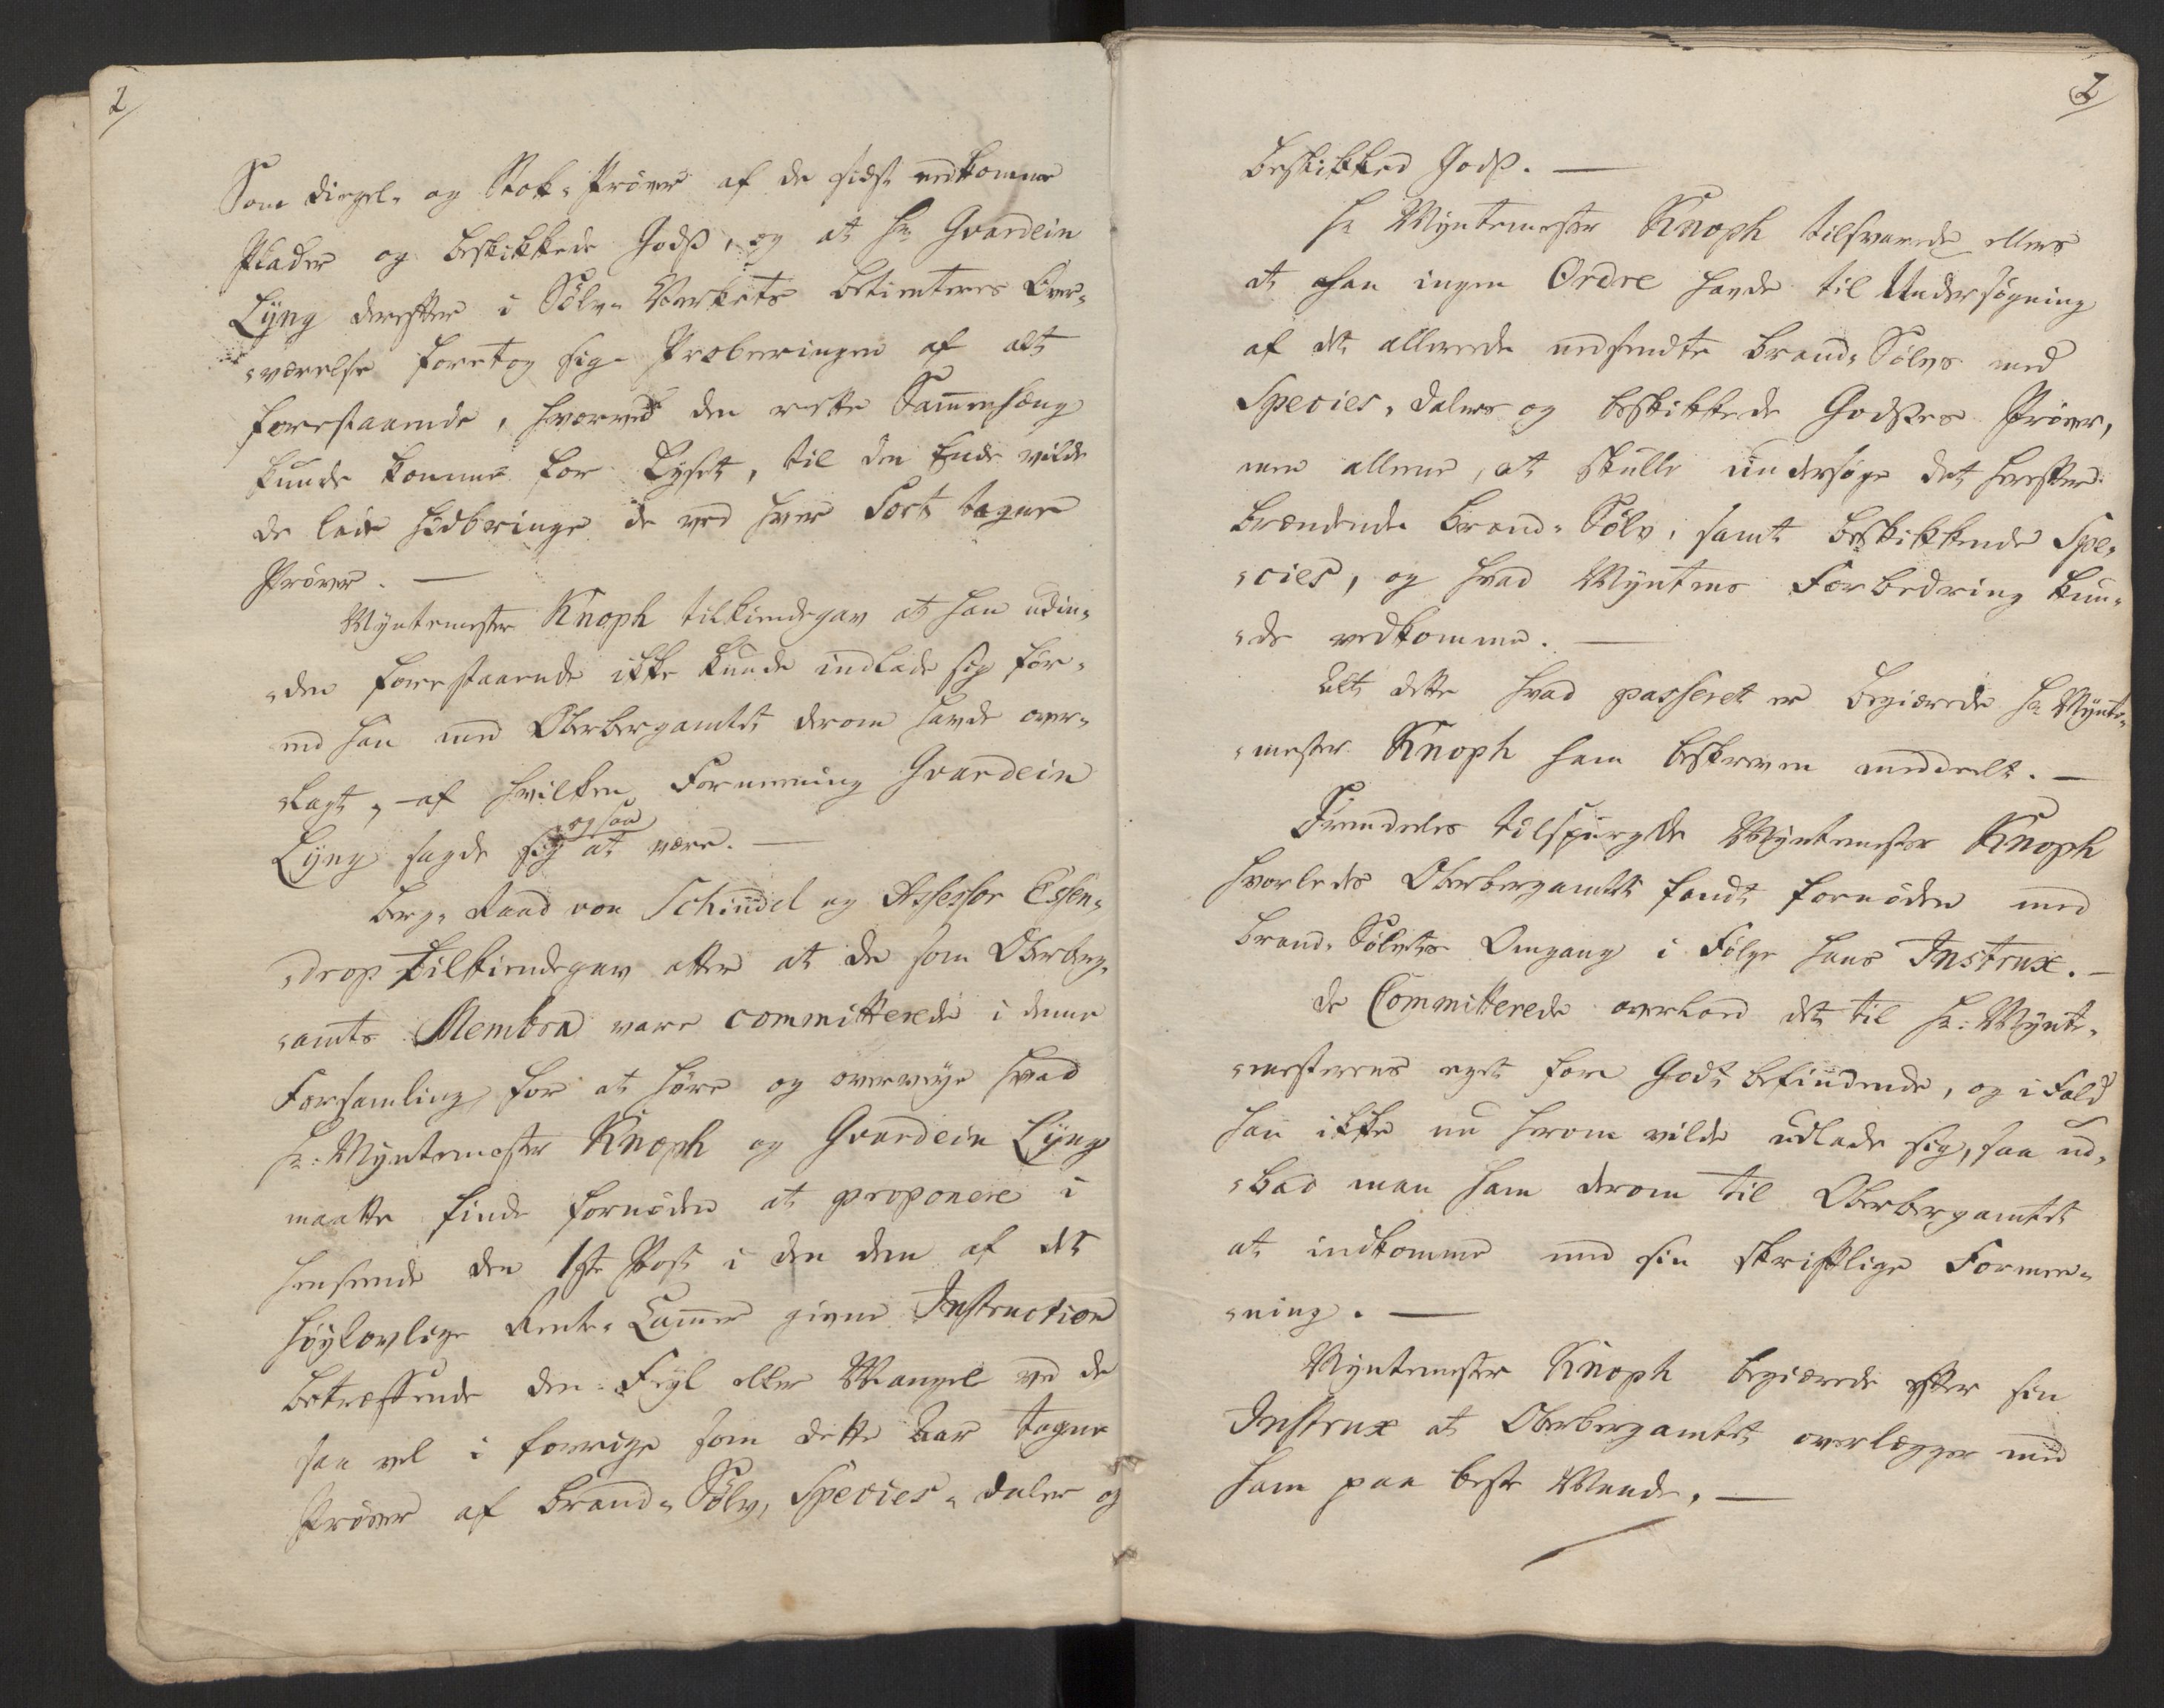 2/
Som Diegel- og Stok-Prøver af de sidst nedkomne
Plader og beskikkede Gods, og at Hr Gvardein
Lyng derefter i Sølv-Verkets betienteres Over-
-værelse foretog sig Proberingen af alt
forestaaende, hvorved den rette Sammenhæng
kunde komme for Lyset, til den Ende vilde
de lade hidbringe de ved hver Sort tagne
Prøver. —
Myntemester Knoph tilkiendegav at han udin-
-den forestaaende ikke kunde indlade sig før-
end han med Oberbergamtet derom havde over-
-lagt, af hvilken Formening Gvardein
Lyng sagde sig ogsaa at være. —
Berg-Raad von Schindel og Assessor Essen-
-drop tilkiendegav atter at de som Oberberg-
-amts Membra vare committerede i denne
Forsamling for at høre og overveye hvad
Hr: Myntemester Knoph og Gvardein Lyng
maatte finde fornøden at proponere i
henseende den 1ste Post i den dem af det
høylovlige Rente-Cammer givne Instruction
betreffende den Feyl eller Mangel ved de
saa vel i forrige som dette Aar tagne
Prøver af Brand-Sølv, Species-Daler og
2/
beskikked Gods. —
Hr Myntemester Knoph tilsvarede ellers
at han ingen Ordre havde til Undersøgning
af det allerede nedsendte Brand-Sølvs med
Species-Dalers og beskikkede Godses Prøver,
men allene, at skulle undersøge det herefter
brændende Brand-Sølv, samt beskikkende Spe-
-cies, og hvad Myntens Forbedring kun-
-de vedkomme. —
Alt dette hvad passeret er begiærede Hr Mynte-
-mester Knoph ham beskreven meddeelt. —
Fremdeles tilspurgde Myntemester Knoph
hvorledes Oberbergamtet fandt fornøden med
Brand-Sølvets Omgang i Følge hans Instrux. —
De Committerede overlod det til Hr: Mynt-
-mesterens eget for Godt befindende, og i Fald
han ikke nu herom vilde udlade sig, saa ud-
-bad man ham derom til Oberbergamtet
at indkomme med sin skriftlige Formee-
-ning. —
Myntemester Knoph begiærede efter sin
Instrux at Oberbergamtet overlægger med
ham paa beste Maade. —